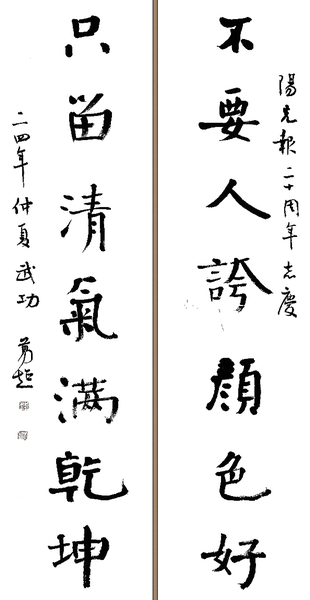 陽光報二十周年志慶
不要人誇顏色好
只留清氣满乾坤
二四年仲夏武功